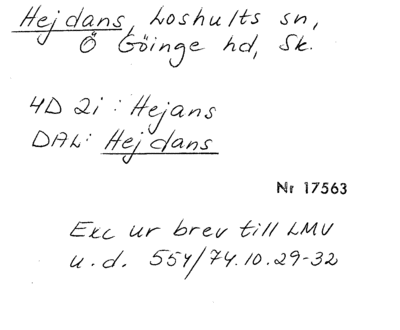 Hejdans, Loshults sn,
Ö Göinge hd, Sk.
4D 2i : Hejans
DAL: Hejdans
Nr 17563
Exc ur brev till LMV
u.d. 554/74.10.29-32